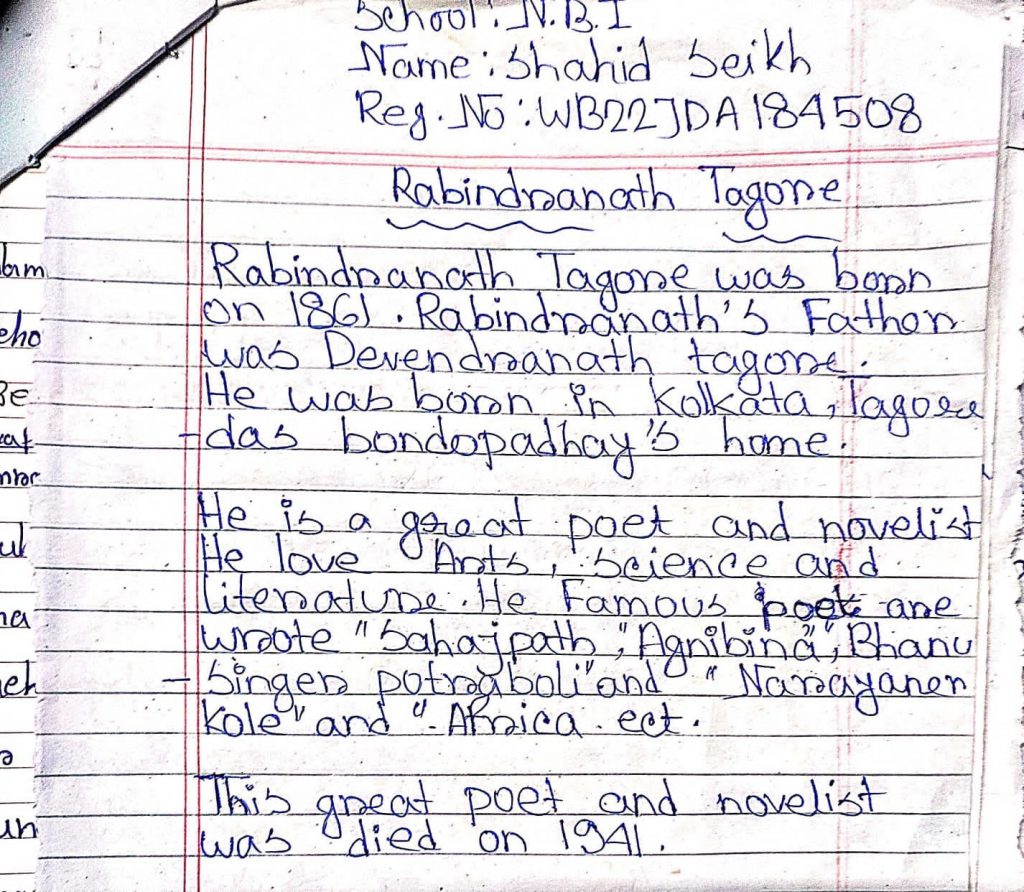 School: N.B.I
Name: Shahid Seikh
Reg. No: WB22JDA184508
Rabindranath Tagore
Rabindranath Tagore was born
on 1861. Rabindranath's Father
was Devendranath tagore.
He was born in Kolkata, Tagore
-das bondopadhay's home.
He is a great poet and novelist
He love Arts, Science and
Literature. He Famous poet are
wrote "Sahajpath", "Agnibina", "Bhanu
-Singer potraboli" and "Narayaner
Kole" and "Africa. ect.
This great poet and novelist
was died on 1941.